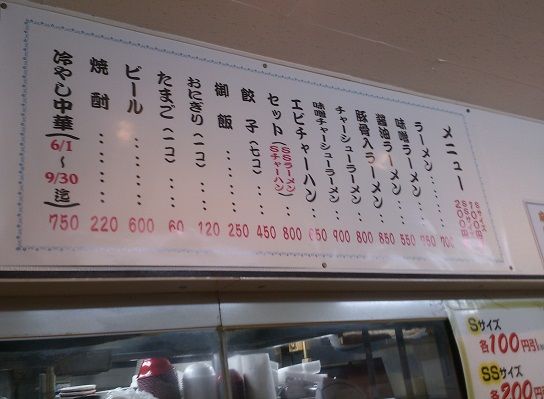 メニュー
ラーメン・・・・・・700
味噌ラーメン・・・750
醤油ラーメン・・550
豚骨入ラーメン・850
チャーシューラーメン・・800
味噌チャーシューラーメン・・900
エビチャーハン・・650
セット(SSラーメン Sチャーハン)・・800
餃子(七コ)・・・450
御飯・・・・・・250
おにぎり(一コ)・・・120
たまご(一コ)・・・60
ビール・・・・・600
焼酎・・・・・・220
冷やし中華(6/1〜9/30迄)・・750
Sサイズ
各100円引
SSサイズ
各200円